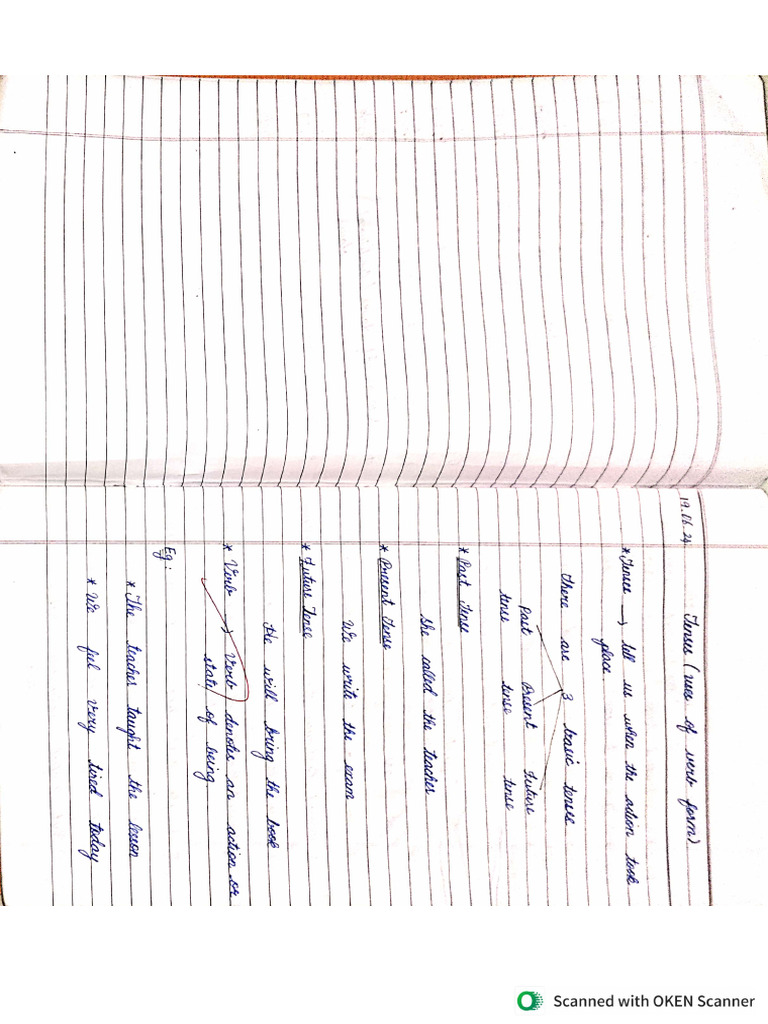 19.06.24
Tenses (uses of verb form)
* Tenses → tell us when the action took
place.
There are 3 basic tenses
Past Present Future
tense tense tense
* Past Tense
She called the teacher
* Present Tense
We write the exam
* Future Tense
He will bring the book
* Verb → Verb denotes an action or
state of being
Eg:
* The teacher taught the lesson
* We feel very tired today
Scanned with OKEN Scanner